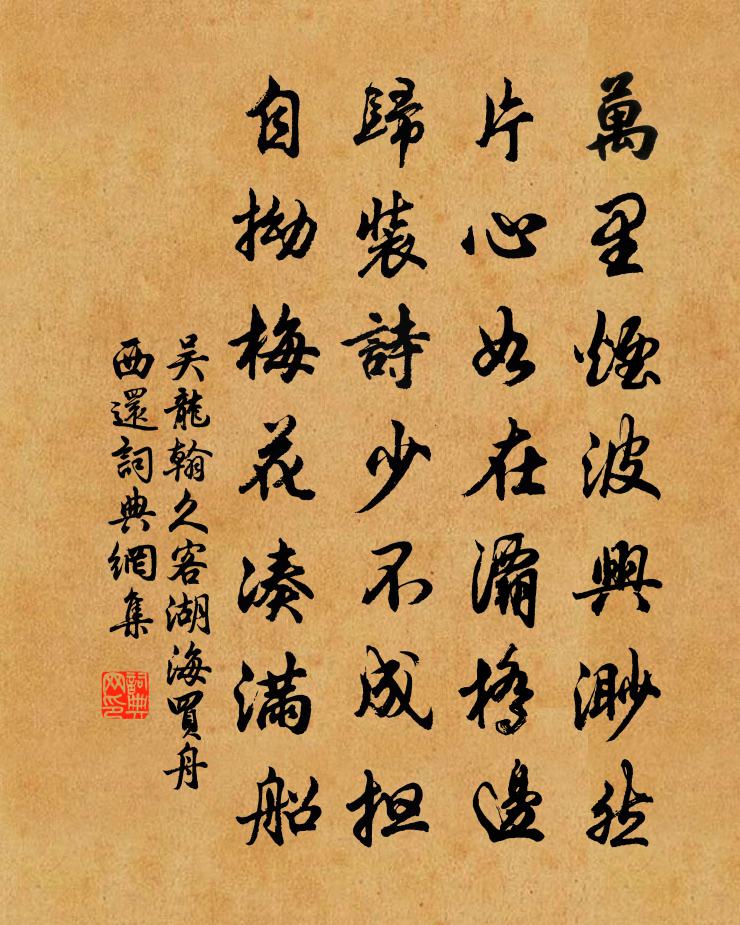 萬里煙波興渺然
片心如在灞橋邊
歸裝詩少不成担
自拗梅花凑满船
吴龍翰久客湖海買舟
西還詞典網集
詞典
网印